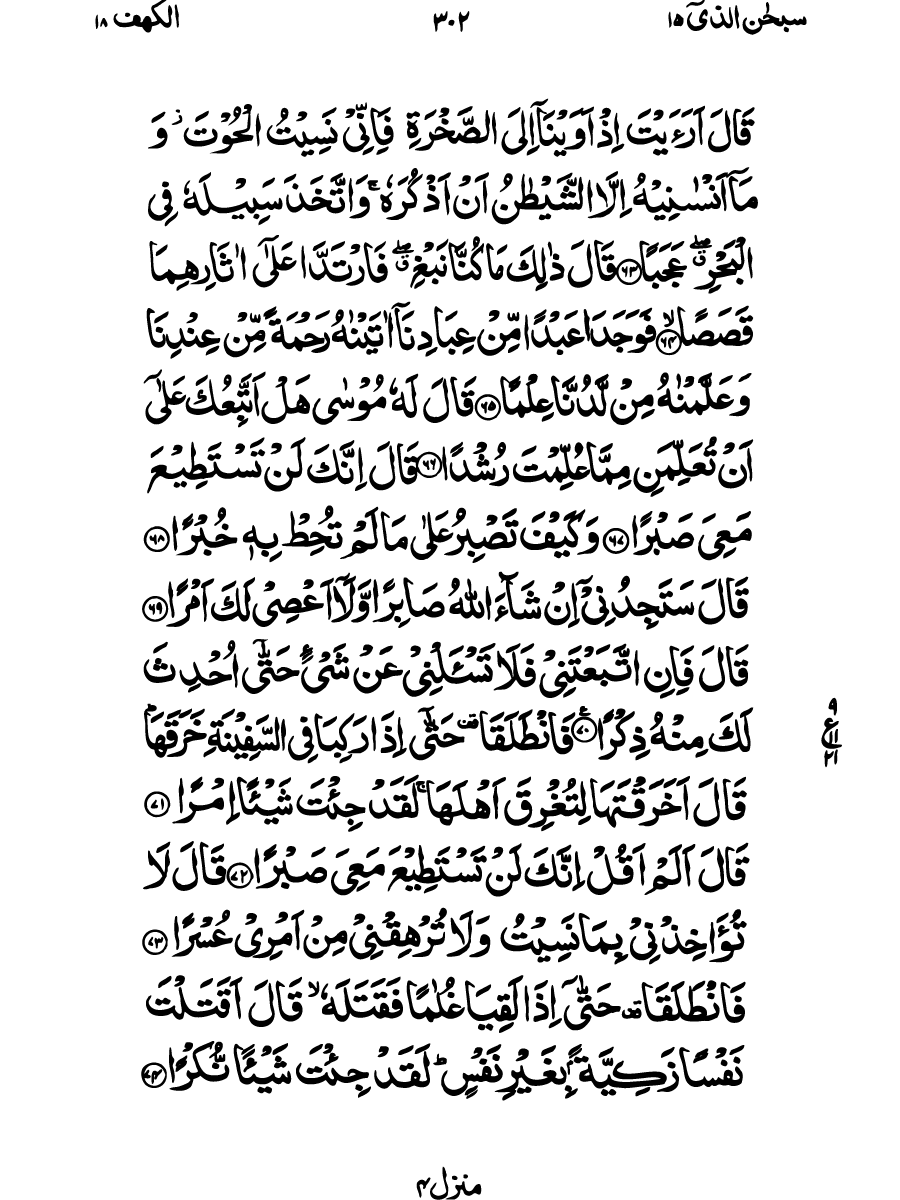 سبحٰن الذیٓ ۱۵ ۳۰۲ الکهف ۱۸
قَالَ اَرَءَيْتَ اِذْ اَوَيْنَآ اِلَى الصَّخْرَةِ فَاِنِّيْ نَسِيْتُ الْحُوْتَ ۫ وَ
مَآ اَنْسٰىنِيْهُ اِلَّا الشَّيْطٰنُ اَنْ اَذْكُرَهٗ ۚ وَاتَّخَذَ سَبِيْلَهٗ فِي
الْبَحْرِ ۖۗ عَجَبًا ۶۳ قَالَ ذٰلِكَ مَا كُنَّا نَبْغِ ۖۗ فَارْتَدَّا عَلٰٓى اٰثَارِهِمَا
قَصَصًا ۙ ۶۴ فَوَجَدَا عَبْدًا مِّنْ عِبَادِنَآ اٰتَيْنٰهُ رَحْمَةً مِّنْ عِنْدِنَا
وَعَلَّمْنٰهُ مِنْ لَّدُنَّا عِلْمًا ۶۵ قَالَ لَهٗ مُوْسٰى هَلْ اَتَّبِعُكَ عَلٰٓى
اَنْ تُعَلِّمَنِ مِمَّا عُلِّمْتَ رُشْدًا ۶۶ قَالَ اِنَّكَ لَنْ تَسْتَطِيْعَ
مَعِيَ صَبْرًا ۶۷ وَكَيْفَ تَصْبِرُ عَلٰى مَا لَمْ تُحِطْ بِهٖ خُبْرًا ۶۸
قَالَ سَتَجِدُنِيْٓ اِنْ شَآءَ اللّٰهُ صَابِرًا وَّلَآ اَعْصِيْ لَكَ اَمْرًا ۶۹
قَالَ فَاِنِ اتَّبَعْتَنِيْ فَلَا تَسْـَٔلْنِيْ عَنْ شَيْءٍ حَتّٰٓى اُحْدِثَ
لَكَ مِنْهُ ذِكْرًا ۧ ۷۰ فَانْطَلَقَا ۥ حَتّٰٓى اِذَا رَكِبَا فِي السَّفِيْنَةِ خَرَقَهَا ؕ
۹
ع
۱۱
۲۱
قَالَ اَخَرَقْتَهَا لِتُغْرِقَ اَهْلَهَا ۚ لَقَدْ جِئْتَ شَيْـًٔا اِمْرًا ۷۱
قَالَ اَلَمْ اَقُلْ اِنَّكَ لَنْ تَسْتَطِيْعَ مَعِيَ صَبْرًا ۷۲ قَالَ لَا
تُؤَاخِذْنِيْ بِمَا نَسِيْتُ وَلَا تُرْهِقْنِيْ مِنْ اَمْرِيْ عُسْرًا ۷۳
فَانْطَلَقَا ۥ حَتّٰٓى اِذَا لَقِيَا غُلٰمًا فَقَتَلَهٗ ۙ قَالَ اَقَتَلْتَ
نَفْسًا زَكِيَّةً ۢ بِغَيْرِ نَفْسٍ ؕ لَقَدْ جِئْتَ شَيْـًٔا نُّكْرًا ۷۴
منزل ۴